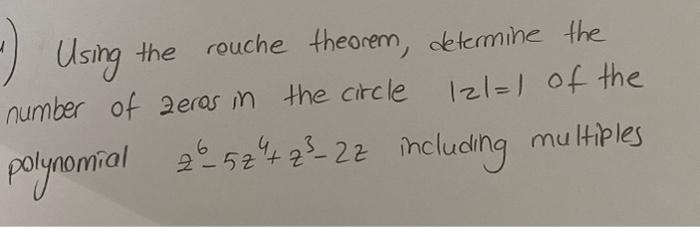 ) Using the rouche theorem, determine the
number of zeros in the circle |z|=1 of the
polynomial z⁶-5z⁴+z³-2z including multiples